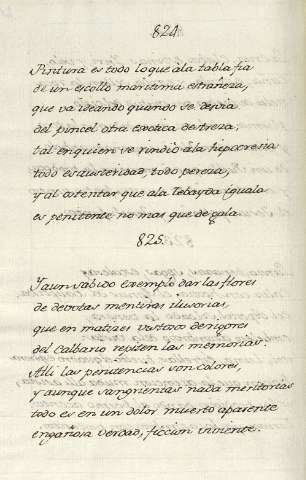 824.
Pintura es todo lo que à la tabla fia
de un escollo maritimo estrañeza,
que va ideando quando se desvia
del pincel otra exotica destreza;
tal en quien se rindiò à la hipocresia
todo es austeridad, todo pereza,
y al ostentar que ala Tebayda iguala
es penitente no mas que de gala.
825.
Y aun sabido exemplo dar las flores
de devotas mentiras ilusorias,
que en matizes vastos de rigores
del Calbario repiten las memorias.
Alli las penitencias son colores,
y aunque sangrientas nada meritorias
todo es en un dolor muerto aparente
engañosa verdad, ficcion viviente.